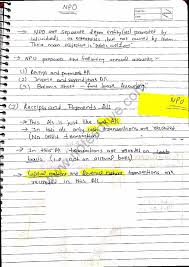 NPO
→ NPO are separate legal entity(es) promoted by
individuals or enterprises but not owned by them.
Their main objective is "public welfare"
→ NPO prepares the following annual accounts -
(1) Receipt and payment A/c
(2) Income and expenditure A/c
(3) Balance sheet
(1) Receipts and Payments A/c
NPO
→ This A/c is just like cash A/c
→ In this A/c only cash transactions are recorded
(No credit transaction)
→ In this A/c, transactions are recorded on cash
basis (i.e. not on accrual basis)
→ Capital nature and Revenue nature transactions are
recorded in this A/c